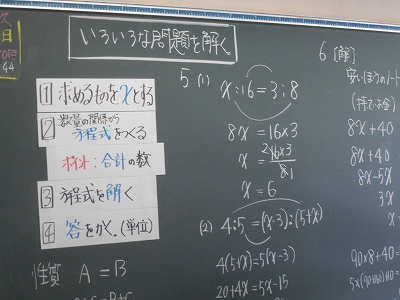 いろいろな問題を解く
1 求めるものをxとする
2 数量の関係から
方程式をつくる
ポイント：合計の数
3 方程式を解く
4 答をかく.(単位)
性質 A = B
5 (1) x : 16 = 3 : 8
8x = 16×3
x = 6
(2) 4 : 5 = (x-3) : (5+x)
4(5+x) = 5(x-3)
20+4x = 5x-15
6 [解]
安いほうのノート
8x + 40
8x + 40
8x - 5x
3x
x
90×8 + 40 =